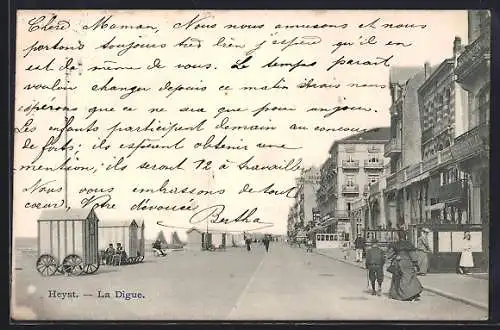 Chère Maman, Nous nous amusons et nous
portons toujours très bien j'espère qu'il en
est de même de vous. Le temps parait
vouloir changer depuis ce matin mais nous
espérons que ce ne sera que pour un jour.
Les enfants participent demain au concours
de forts, ils espèrent obtenir une
mention, ils seront 12 à travailler
Nous vous embrassons de tout
cœur, Votre dévouée
Bertha
Heyst. – La Digue.